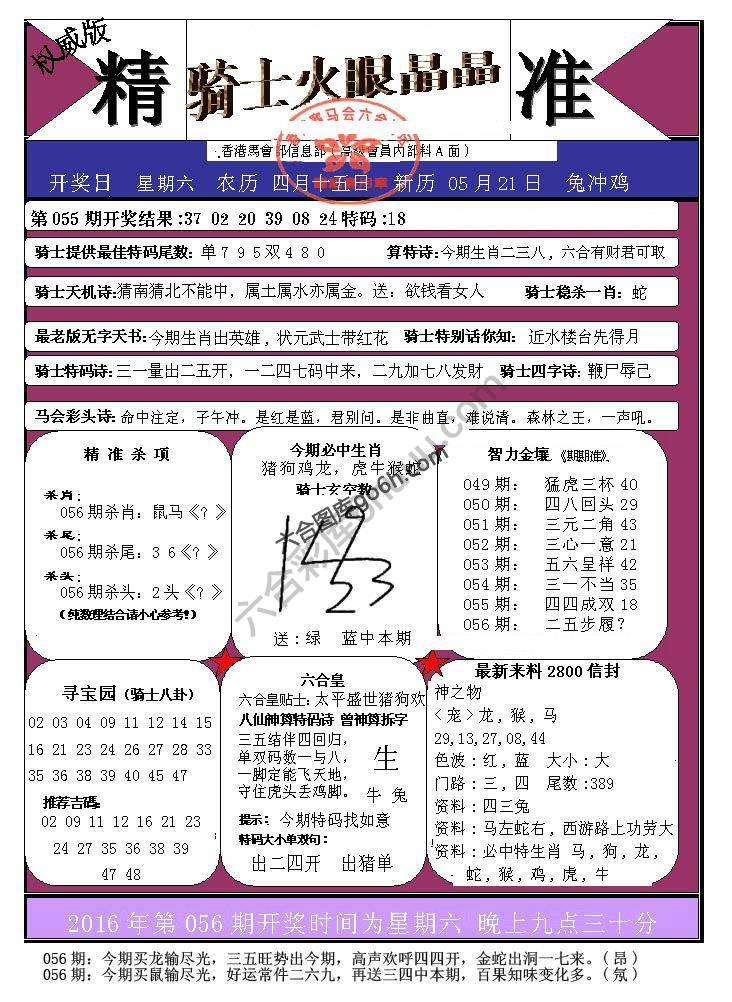 权威版
精 骑士火眼晶晶 准
香港馬會 部信息部(高級會員内部料A面)
开奖日 星期六 农历 四月十五日 新历 05月21日 兔冲鸡
第055期开奖结果:37 02 20 39 08 24特码:18
骑士提供最佳特码尾数: 单7 9 5双4 8 0 算特诗:今期生肖二三八, 六合有财君可取
骑士天机诗:猜南猜北不能中, 属土属水亦属金。送: 欲钱看女人 骑士稳杀一肖: 蛇
最老版无字天书:今期生肖出英雄, 状元武士带红花 骑士特别话你知: 近水楼台先得月
骑士特码诗:三一量出二五开, 一二四七码中来, 二九加七八发財 骑士四字诗: 鞭尸辱己
马会彩头诗: 命中注定, 子午冲。是红是蓝, 君别问。是非曲直, 难说清。森林之王, 一声吼。
精 准 杀 项
杀肖:
056期杀肖: 鼠马《? 》
杀尾:
056期杀尾: 3 6《? 》
杀头:
056期杀头: 2头《? 》
(纯数理结合请小心参考!)
今期必中生肖
猪狗鸡龙, 虎牛猴蛇
骑士玄空数
送: 绿 蓝中本期
智力金壤《期期准》
049期: 猛虎三杯40
050期: 四八回头29
051期: 三元二角43
052期: 三心一意21
053期: 五六呈祥42
054期: 三一不当35
055期: 四四成双18
056期: 二五步履?
寻宝园(骑士八卦)
02 03 04 09 11 12 14 15
16 21 23 24 26 27 28 33
35 36 38 39 40 45 47
推荐吉码:
02 09 11 12 16 21 23
24 27 35 36 38 39
47 48
六合皇
六合皇贴士: 太平盛世猪狗欢
八仙神算特码诗 曾神算拆字
三五结伴四回归,
单双码数一与八,
一脚定能飞天地,
守住虎头丢鸡脚。
生
牛 兔
提示: 今期特码找如意
特码大小单双句:
出二四开 出猪单
最新来料2800信封
神之物
<宠>龙, 猴, 马
29,13,27,08,44
色波: 红, 蓝 大小: 大
门路: 三, 四 尾数:389
资料: 四三兔
资料: 马左蛇右, 西游路上功劳大
资料: 必中特生肖 马, 狗, 龙,
蛇, 猴, 鸡, 虎, 牛
2016年第056期开奖时间为星期六 晚上九点三十分
056期: 今期买龙输尽光, 三五旺势出今期, 高声欢呼四四开, 金蛇出洞一七来。(昂)
056期: 今期买鼠输尽光, 好运常件二六九, 再送三四中本期, 百果知味变化多。(氖)